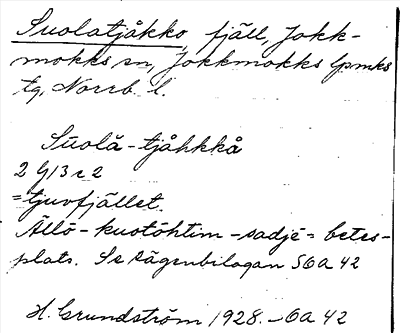 Suolatjåkko, fjäll, Jokk-
mokks sn, Jokkmokks lpmks
tg, Norrb. l.
Suolå-tjåhkkå
2 G13 c 2
= tjuvfjället.
Ällō-kuotōhtim-sadjē = betes-
plats. Se sägenbilagan SGA 42
H. Grundström 1928. – GA 42